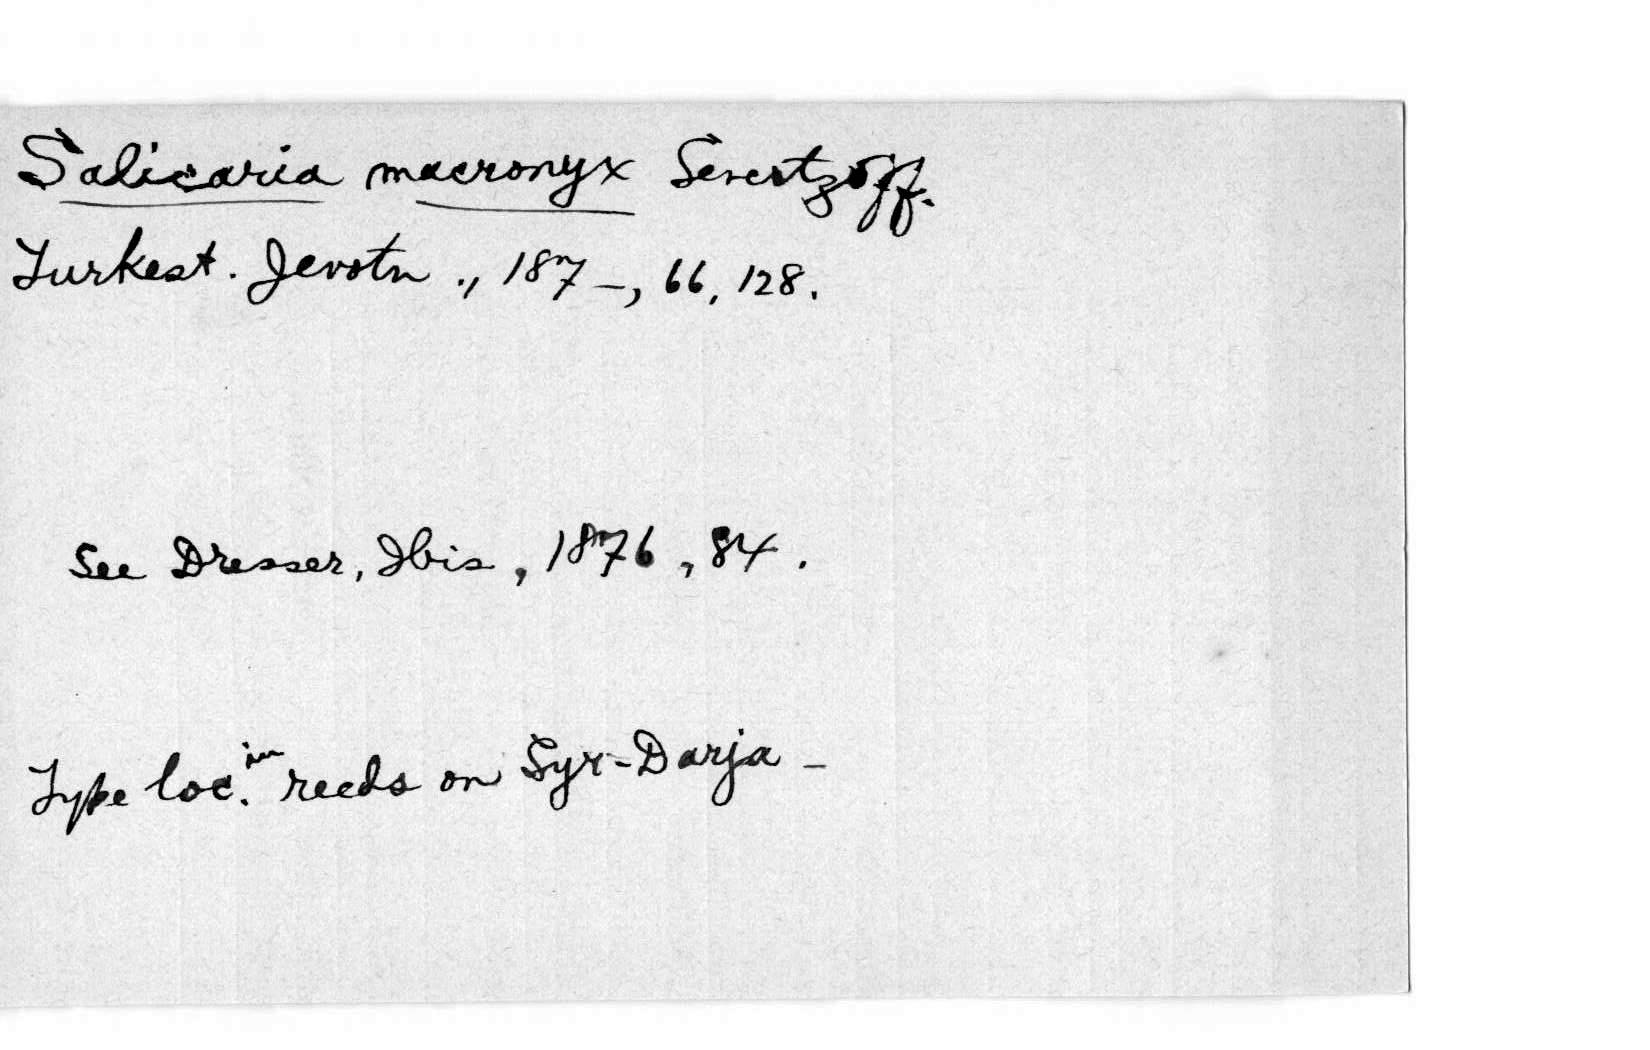 Salicaria macronyx Severtzoff.
Turkest. Jevotn ., 187-, 66, 128.
See Dresser, Ibis, 1876, 84.
Type loc. in reeds on Syr-Darja -